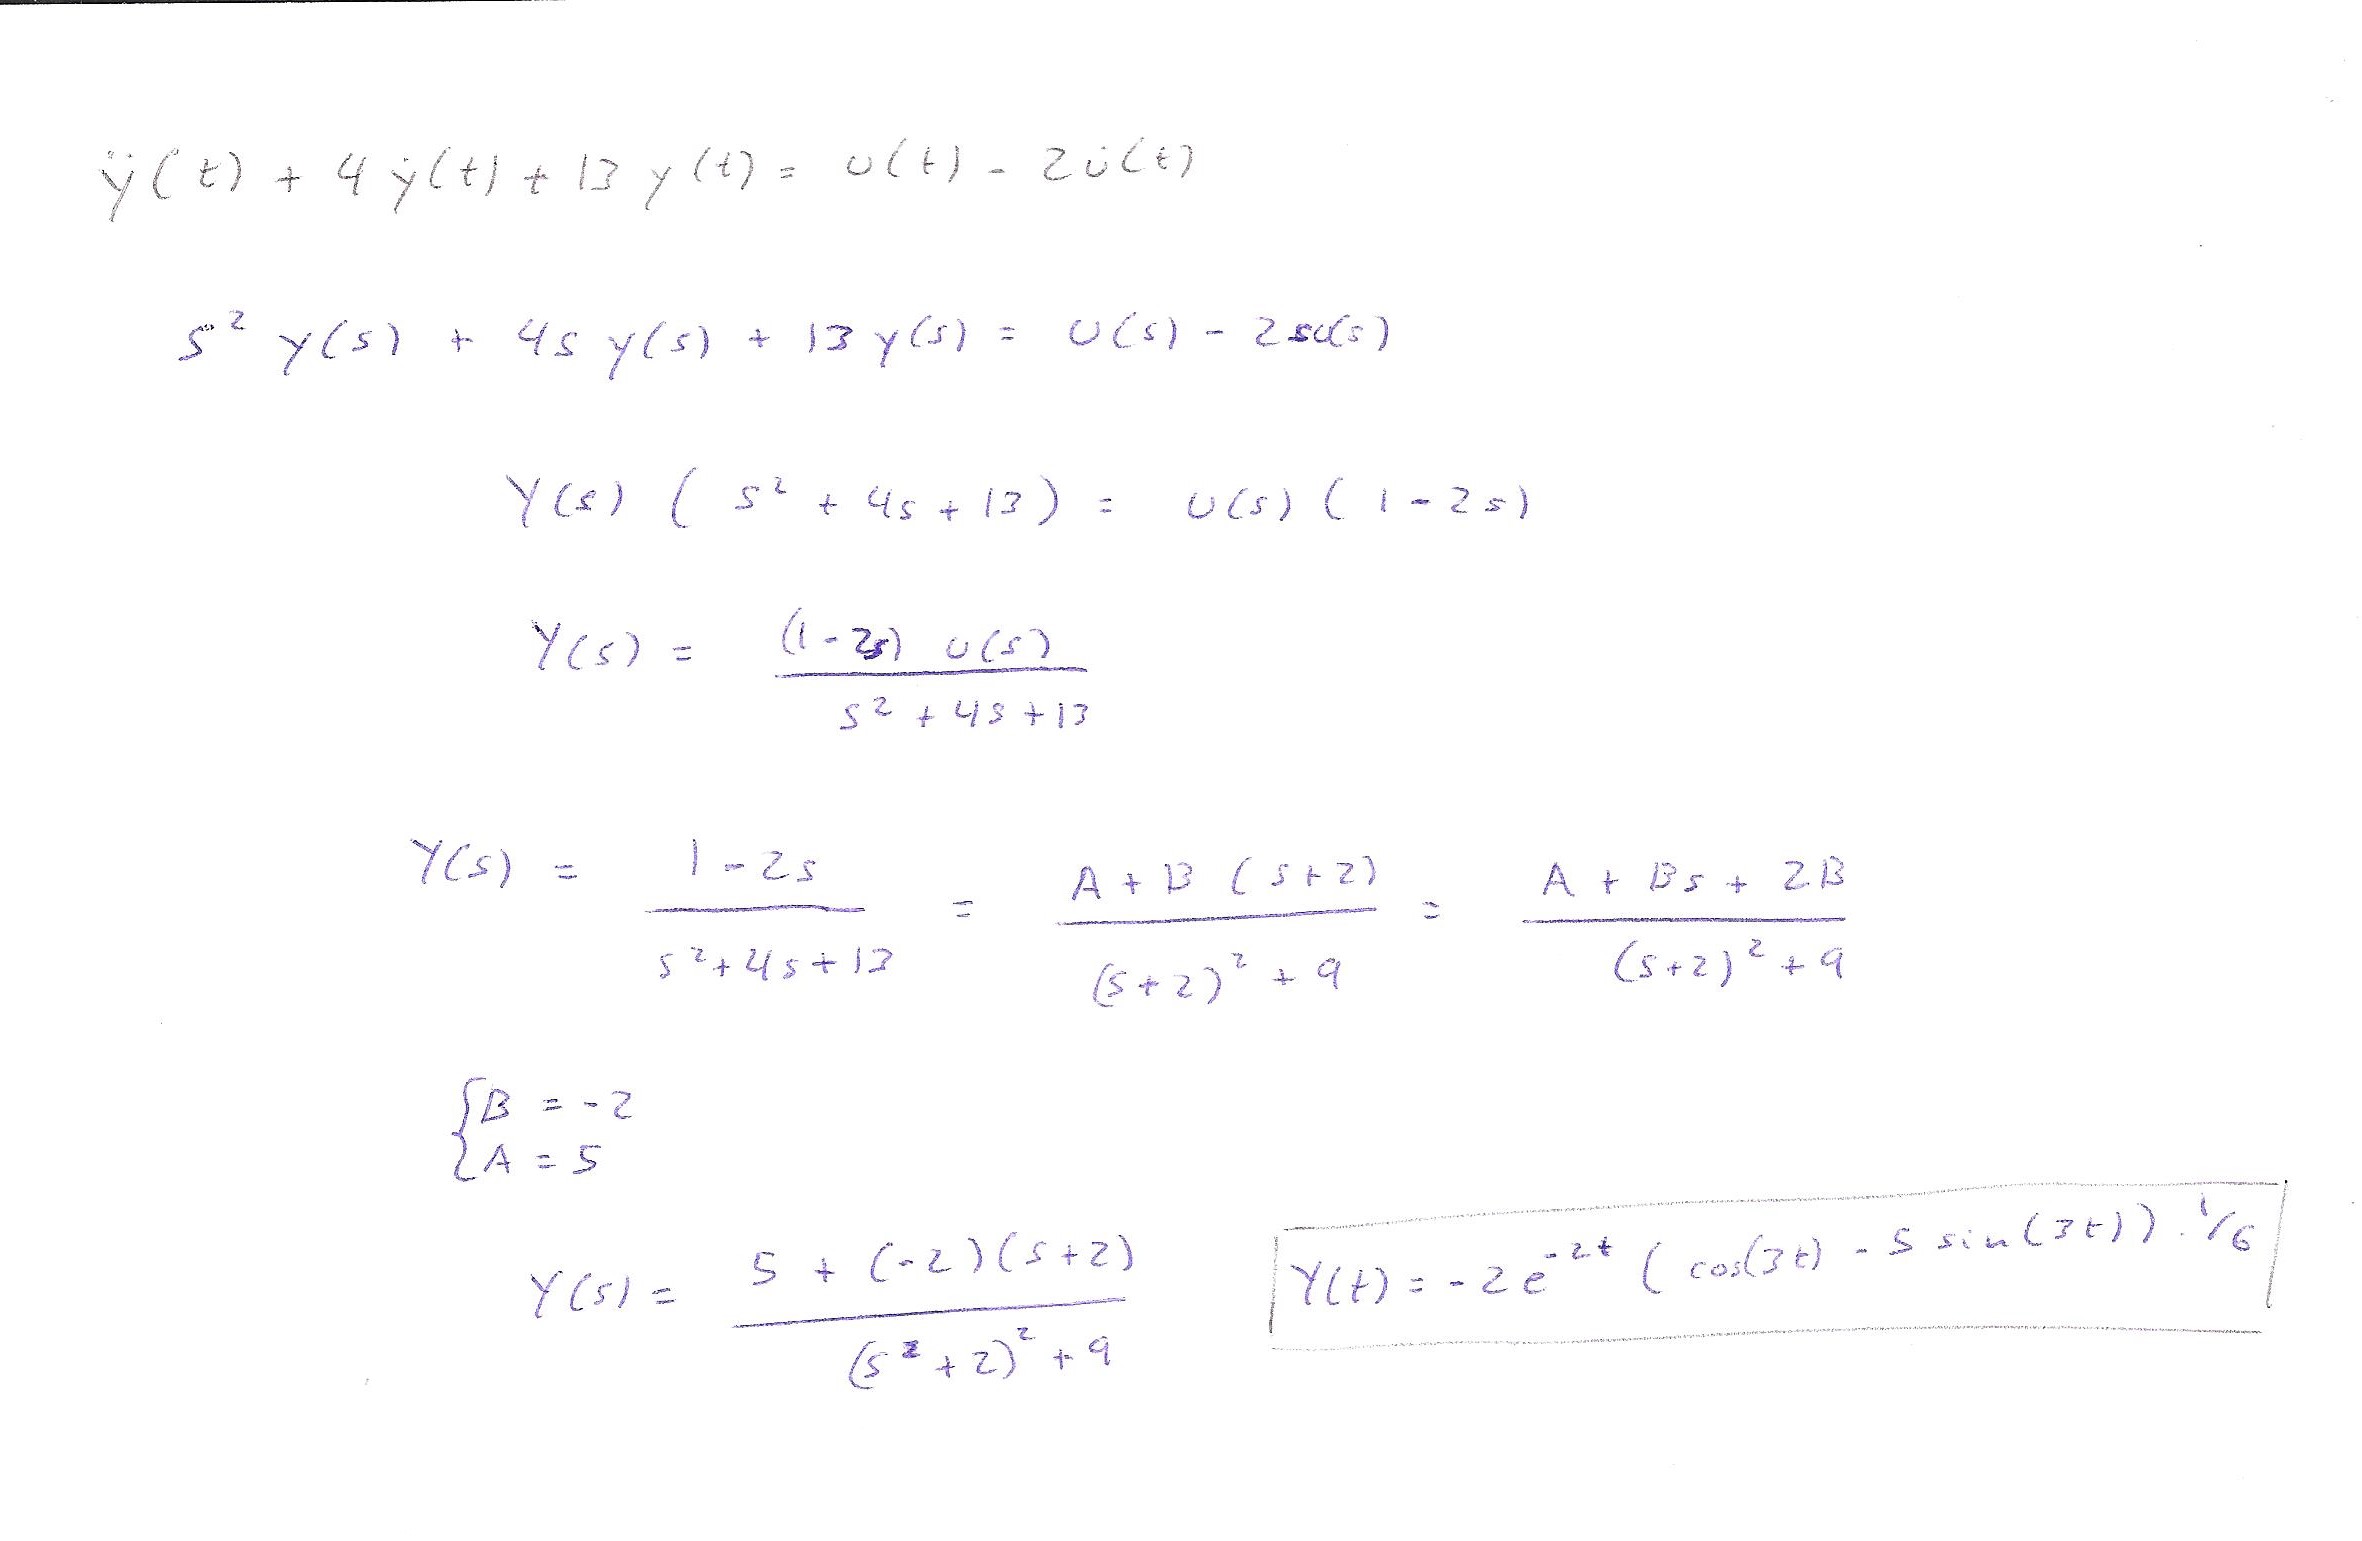 ÿ(t) + 4 ẏ(t) + 13 y(t) = u(t) - 2u̇(t)
s² y(s) + 4s y(s) + 13 y(s) = U(s) - 2su(s)
Y(s) ( s² + 4s + 13 ) = U(s) ( 1 - 2s )
Y(s) = (1-2s) U(s) / s² + 4s + 13
Y(s) = 1 - 2s / s² + 4s + 13 = A + B (s+2) / (s+2)² + 9 = A + Bs + 2B / (s+2)² + 9
{ B = -2
{ A = 5
Y(s) = 5 + (-2)(s+2) / (s² + 2)² + 9
Y(t) = -2 e^-2t ( cos(3t) - 5 sin(3t)) · 1/6